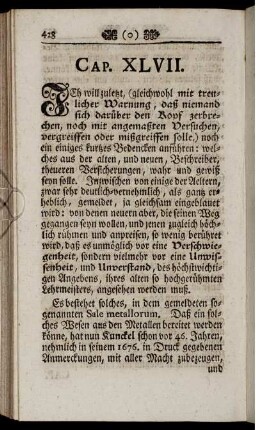 428 (o)
CAP. XLVII.
ICh will zuletzt, (gleichwohl mit treu-
licher Warnung, daß niemand
sich darüber den Kopf zerbre-
chen, noch mit angemaßten Versuchen,
vergreiffen oder mißgreiffen solle,) noch
ein einiges kurtzes Bedencken anführen: wel-
ches aus der alten, und neuen, Beschreiber,
theueren Versicherungen, wahr und gewiß
seyn solle. Inzwischen von einige der Aeltern,
zwar sehr deutlich-vernehmlich, als gantz er-
heblich, gemeldet, ja gleichsam eingeblauet
wird: von denen neuern aber, die seinen Weg
gegangen seyn wollen, und jenen zugleich höch-
lich rühmen und anpreisen, so wenig berühret
wird, daß es unmöglich vor eine Verschwie-
genheit, sondern vielmehr vor eine Unwis-
senheit, und Unverstand, des höchstwichti-
gen Angebens, ihres alten so hochgerühmten
Lehrmeisters, angesehen werden muß.
Es bestehet solches, in dem gemeldeten so-
genannten Sale metallorum. Daß ein sol-
ches Wesen aus den Metallen bereitet werden
könne, hat nun Kunckel schon vor 46. Jahren,
nehmlich in seinem 1676. in Druck gegebenen
Anmerckungen, mit aller Macht zubezeugen,
und